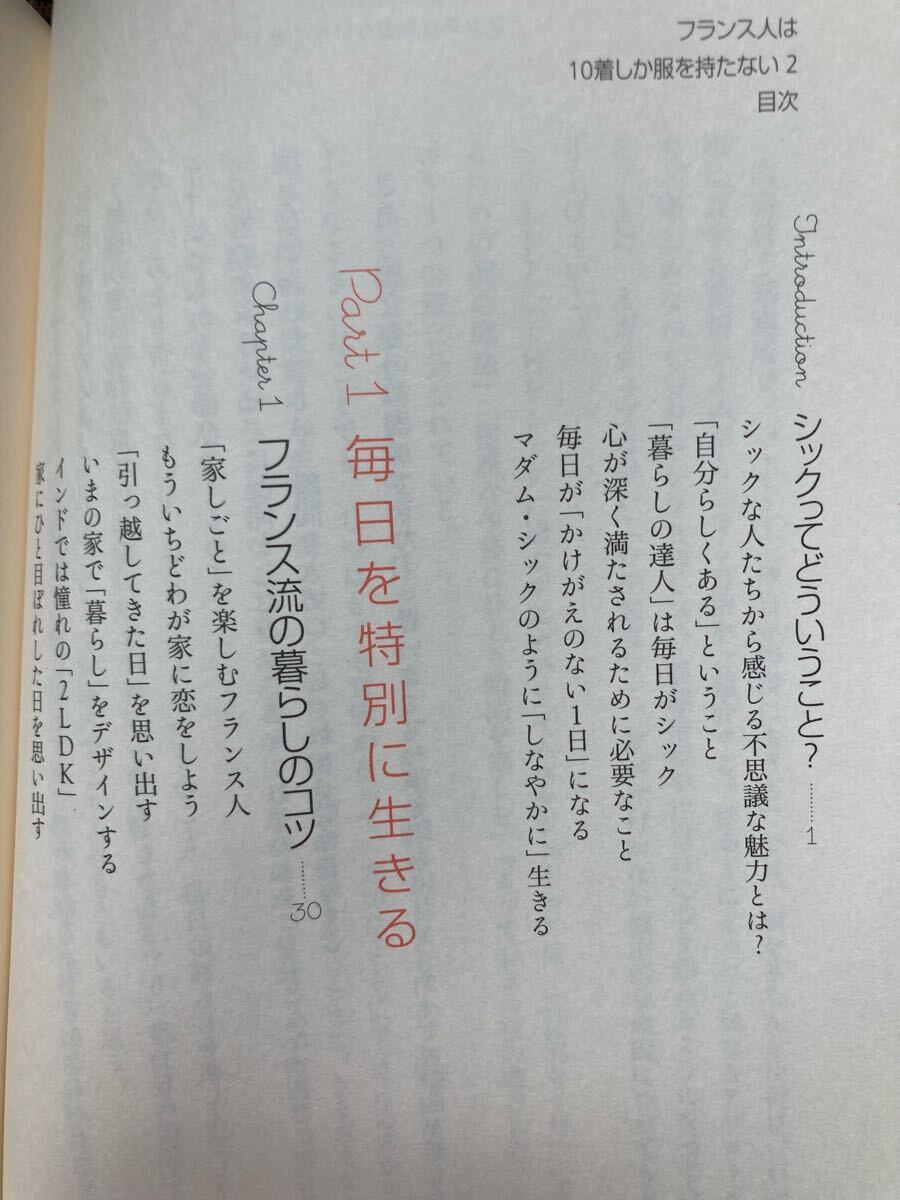 フランス人は
10着しか服を持たない 2
目次
Introduction シックってどういうこと？ ………1
シックな人たちから感じる不思議な魅力とは？
「自分らしくある」ということ
「暮らしの達人」は毎日がシック
心が深く満たされるために必要なこと
毎日が「かけがえのない1日」になる
マダム・シックのように「しなやかに」生きる
Part 1 毎日を特別に生きる
Chapter 1 フランス流の暮らしのコツ ………30
「家しごと」を楽しむフランス人
もういちどわが家に恋をしよう
「引っ越してきた日」を思い出す
いまの家で「暮らし」をデザインする
インドでは憧れの「2LDK」
家にひと目ぼれした日を思い出す